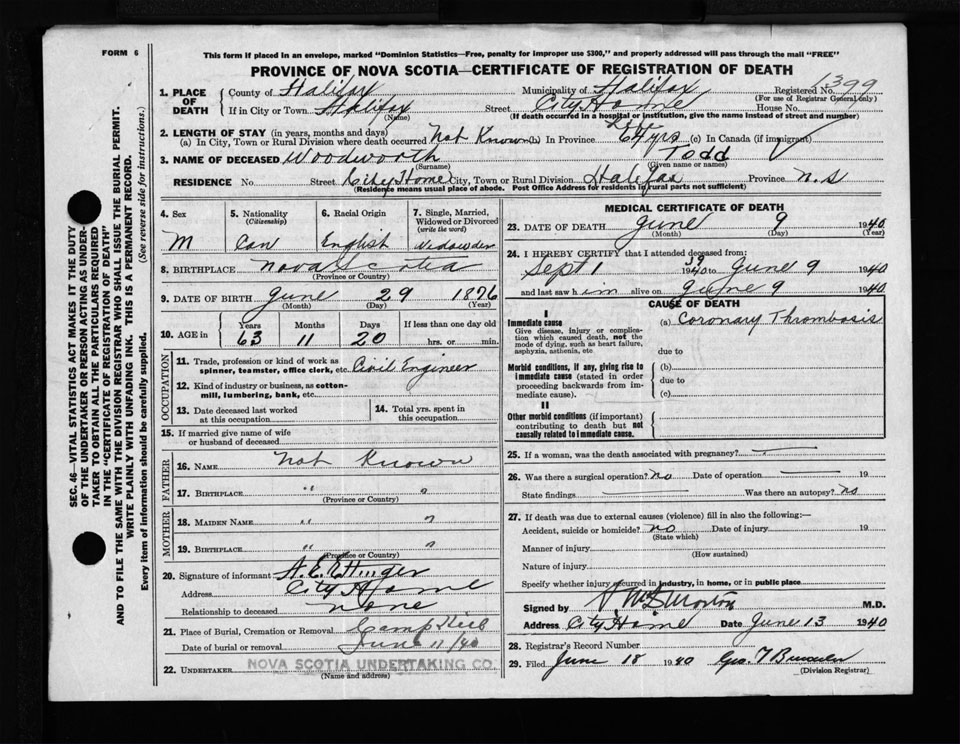 FORM 6
This form if placed in an envelope, marked "Dominion Statistics—Free, penalty for improper use $300," and properly addressed will pass through the mail "FREE"
PROVINCE OF NOVA SCOTIA—CERTIFICATE OF REGISTRATION OF DEATH
1. PLACE OF DEATH
County of Halifax Municipality of Halifax Registered No. 1399
(For use of Registrar General only)
If in City or Town Halifax Street City Home House No.
(Name) (If death occurred in a hospital or institution, give the name instead of street and number)
2. LENGTH OF STAY (in years, months and days)
(a) In City, Town or Rural Division where death occurred Not Known (b) In Province Life 64 yrs (c) In Canada (if immigrant)
3. NAME OF DECEASED Woodworth Todd
(Surname) (Given name or names)
RESIDENCE No. Street City Home City, Town or Rural Division Halifax Province N.S
(Residence means usual place of abode. Post Office Address for residents in rural parts not sufficient)
4. Sex
M
5. Nationality
(Citizenship)
Can
6. Racial Origin
English
7. Single, Married, Widowed or Divorced
(write the word)
Widowder
8. BIRTHPLACE Nova Scotia
(Province or Country)
9. DATE OF BIRTH June 29 1876
(Month) (Day) (Year)
10. AGE in
Years Months Days If less than one day old
63 11 20 hrs. or min.
OCCUPATION
11. Trade, profession or kind of work as
spinner, teamster, office clerk, etc. Civil Engineer
12. Kind of industry or business, as cotton-
mill, lumbering, bank, etc.
13. Date deceased last worked
at this occupation
14. Total yrs. spent in
this occupation
15. If married give name of wife
or husband of deceased
FATHER
16. NAME Not Known
17. BIRTHPLACE " "
(Province or Country)
MOTHER
18. MAIDEN NAME " "
19. BIRTHPLACE " "
(Province or Country)
20. Signature of informant
Address City Home
Relationship to deceased none
21. Place of Burial, Cremation or Removal Camp Hill
Date of burial or removal June 11/40
22. UNDERTAKER NOVA SCOTIA UNDERTAKING CO.
(Name and address)
MEDICAL CERTIFICATE OF DEATH
23. DATE OF DEATH June 9 1940
(Month) (Day) (Year)
24. I HEREBY CERTIFY that I attended deceased from:
Sept 1 1939 to June 9 1940
and last saw him alive on June 9 1940
CAUSE OF DEATH
I
Immediate cause
Give disease, injury or complica-
tion which caused death, not the
mode of dying, such as heart failure,
asphyxia, asthenia, etc
(a) Coronary Thrombosis
due to
Morbid conditions, if any, giving rise to
immediate cause (stated in order
proceeding backwards from im-
mediate cause).
(b)
due to
(c)
II
Other morbid conditions (if important)
contributing to death but not
causally related to immediate cause.
25. If a woman, was the death associated with pregnancy?
26. Was there a surgical operation? No Date of operation 19
State findings Was there an autopsy? No
27. If death was due to external causes (violence) fill in also the following:—
Accident, suicide or homicide? no Date of injury 19
(State which)
Manner of injury
(How sustained)
Nature of injury
Specify whether injury occurred in industry, in home, or in public place
Signed by Morton M.D.
Address City Home Date June 13 1940
28. Registrar's Record Number
29. Filed June 18 1940 Geo. T
(Division Registrar)
SEC. 46—VITAL STATISTICS ACT MAKES IT THE DUTY
OF THE UNDERTAKER OR PERSON ACTING AS UNDER-
TAKER TO OBTAIN ALL THE PARTICULARS REQUIRED
IN THE "CERTIFICATE OF REGISTRATION OF DEATH"
AND TO FILE THE SAME WITH THE DIVISION REGISTRAR WHO SHALL ISSUE THE BURIAL PERMIT.
WRITE PLAINLY WITH UNFADING INK. THIS IS A PERMANENT RECORD.
Every item of information should be carefully supplied. (See reverse side for instructions.)